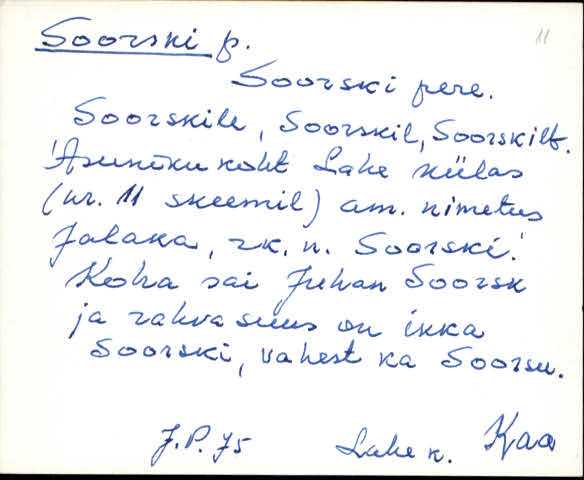 Soorski p.
11
Soorski pere.
Soorskile, Soorskil, Soorskilt.
'Asuniku koht Lahe külas
(nr. 11 skeemil) am. nimetus
Jalaka, rk. n. Soorski.'
Koha sai Juhan Soorsk
ja rahva suus on ikka
Soorski, vahest ka Soorsu.
J.P. 75 Lahe k. Kaa